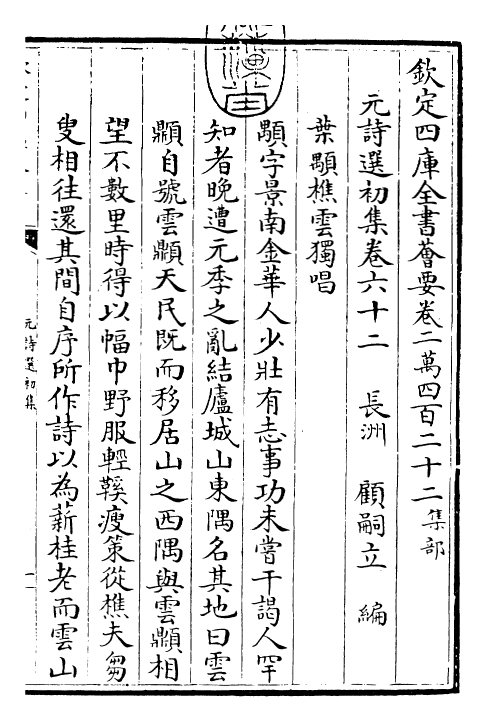 欽定四庫全書薈要卷二萬四百二十二集部
元詩選初集卷六十二　長洲　顧嗣立　編
葉顒樵雲獨唱
顒字景南金華人少壯有志事功未嘗干謁人罕
知者晚遭元季之亂結廬城山東隅名其地曰雲
顥自號雲顥天民既而移居山之西隅與雲顥相
望不數里時得以幅巾野服輕鞵瘦策從樵夫芻
叟相往還其間自序所作詩以為薪桂老而雲山
元詩選初集
一